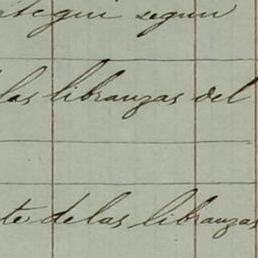 ategui segun
las libranzas del
te de las libranzas